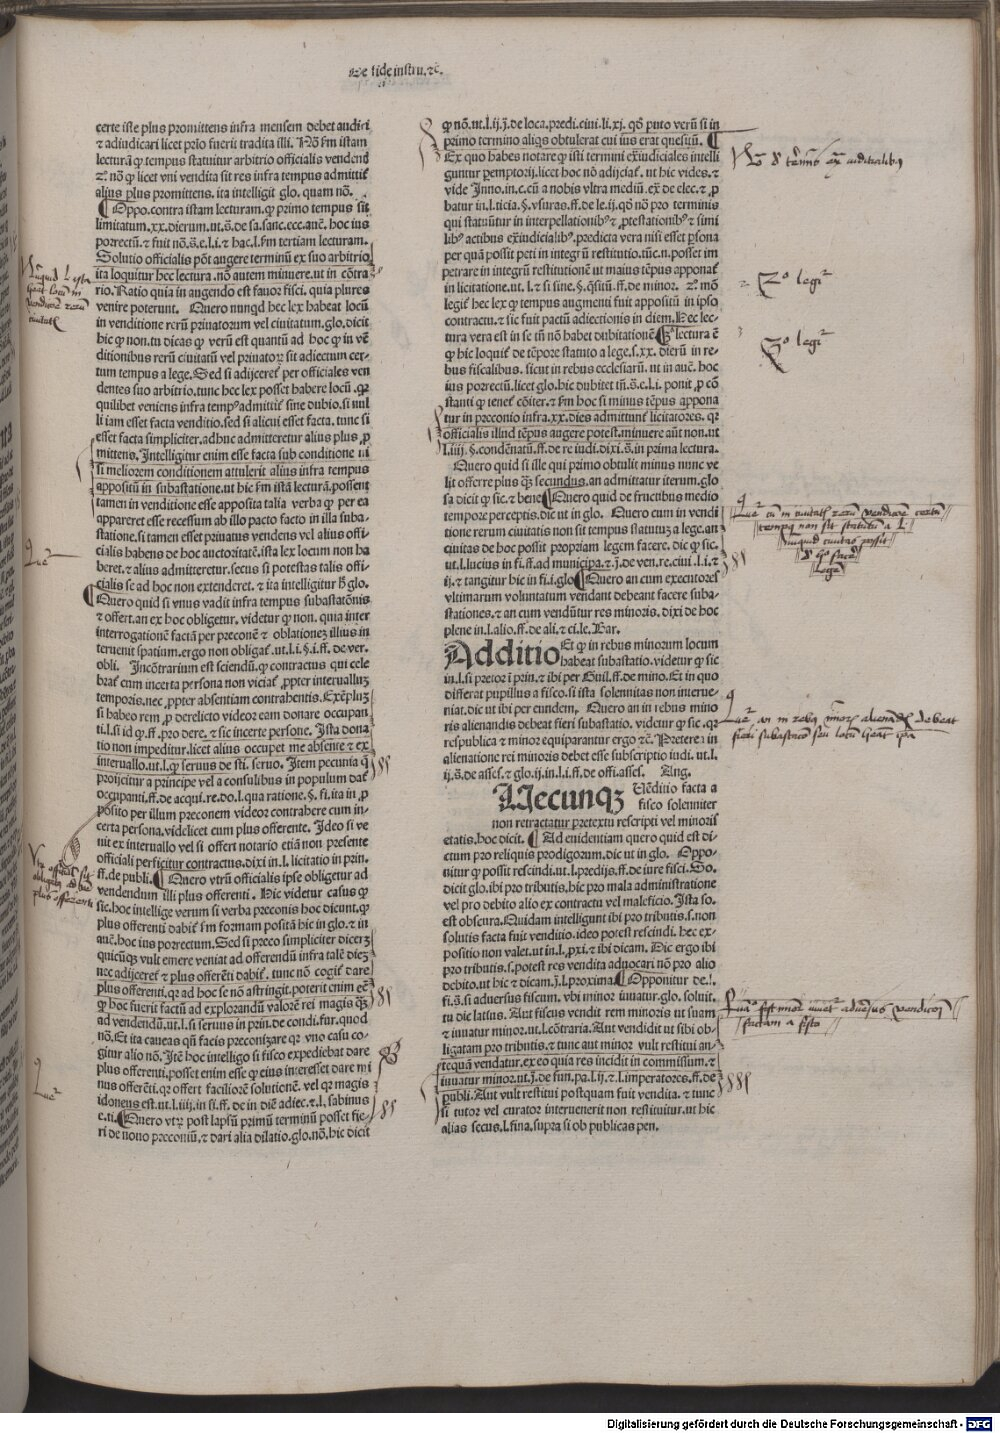 De fide instru. ⁊c̄.
certe iste plus promittens infra mensem debet audiri
⁊ adiudicari licet prīo fuerit tradita illi. Nō ẜm istam
lecturā ꝙ tempus statuitur arbitrio officialis vendend
nō ꝙ licet vni vendita sit res infra tempus admittit̄
alius plus promittens. ita intelligit glo. quam nō.
¶ Oppo. contra istam lecturam. ꝙ primo tempus sit
limitatum. xx. dierum. ut. s̄. de sa. sanc. ecc. auē. hoc ius
porrectū. ⁊ fuit nō. s̄. e. l. i. ⁊ hac. l. ẜm tertiam lecturam.
Solutio officialis pōt augere terminū ex suo arbitrio
ita loquitur hec lectura. nō autem minuere. ut in cōtra
rio. Ratio quia in augendo est fauor fisci. quia plures
venire poterunt. Quero nunqd hec lex habeat locū
in venditione rerū priuatorum vel ciuitatum. glo. dicit
hic ꝙ non. tu dicas ꝙ verū est quantū ad hoc ꝙ in vē
ditionibus rerū ciuitatū vel priuatoꝝ sit adiectum cer-
tum tempus a lege. Sed si adijceret̄ per officiales ven
dentes suo arbitrio. tunc hec lex posset habere locū. qꝛ
quilibet veniens infra temp⁹ admittit̄ sine dubio. si nul
li iam esset facta venditio. sed si alicui esset facta. tunc si
esset facta simpliciter. adhuc admitteretur alius plus ꝓ
mittens. Intelligitur enim esse facta sub conditione
si meliorem conditionem attulerit alius infra tempus
appositū in subastatione. ut hic ẜm istā lecturā. possent
tamen in venditione esse apposita talia verba ꝙ per ea
appareret esse recessum ab illo pacto facto in illa suba-
statione. si tamen esset priuatus vendens vel alius offi-
cialis habens de hoc auctoritatē. ista lex locum non ha
beret. ⁊ alius admitteretur. secus si potestas talis offi-
cialis se ad hoc non extenderet. ⁊ ita intelligitur glo.
¶ Quero quid si vnus vadit infra tempus subastatōnis
⁊ offert. an ex hoc obligetur. videtur ꝙ non. quia inter
interrogationē factā per preconē ⁊ oblationeꝫ illius in
teruenit spatium. ergo non obligat̄. ut. l. i. §. i. ff. de ver.
obli. Incōtrarium est sciendū. ꝙ contractus qui cele
brat̄ cum incerta persona non viciat̄ ꝓpter interualluꝫ
temporis. nec ꝓpter absentiam contrahentis. Exēpluꝫ
si habeo rem ꝓ derelicto videor eam donare occupan
ti. l. si id ꝙ. ff. pro dere. ⁊ sic incerte persone. Ista dona
tio non impeditur. licet alius occupet me absente ⁊ ex
interuallo. ut. l. ꝙ seruus de sti. seruo. Item pecunia ꝙ
proijcitur a principe vel a consulibus in populum dat̄
occupanti. ff. de acqui. re. do. l. qua ratione. §. fi. ita in ꝓ
posito per illum preconem videor contrahere cum in-
certa persona. videlicet cum plus offerente. Ideo si ve
nit ex interuallo vel si offert notario etiā non presente
officiali perficitur contractus. dixi in. l. licitatio in prin.
ff. de publi. ¶ Quero vtrū officialis ipse obligetur ad
vendendum illi plus offerenti. Hic videtur casus ꝙ
sic. hoc intellige verum si verba preconis hoc dicunt. ꝙ
plus offerenti dabit̄ ẜm formam positā hic in glo. ⁊ in
auē. hoc ius porrectum. Sed si preco simpliciter diceꝛꝫ
quicūꝙ vult emere veniat ad offerendū infra talē dieꝫ
nec adijceret̄ ⁊ plus offerēti dabit̄. tunc nō cogit̄ dare
plus offerenti. qꝛ ad hoc se nō astringit. poterit enim eē
ꝙ hoc fuerit factū ad explorandū valorē rei magis ꝙꝫ
ad vendendū. ut. l. si seruus in prin. de condi. fur. quod
nō. Et ita caueas qn̄ facis preconizare qꝛ vno casu co-
gitur alio nō. Itē hoc intelligo si fisco expediebat dare
plus offerenti. posset enim esse ꝙ eius interesset dare mi
nus offerēti. qꝛ offert faciliorē solutionē. vel qꝛ magis
idoneus est. ut. l. iiij. in fi. ff. de in diē adiec. ⁊. l. sabinus
e. ti. ¶ Quero vtꝝ post lapsū primū terminū posset fie-
ri de nouo preconiū. ⁊ dari alia dilatio. glo. nō. hic dicit
ꝙ nō. ut. l. ij. j̄. de loca. predi. ciui. li. xj. qd̄ puto verū si in
primo termino aliqs obtulerat cui ius erat quesitū. ¶
Ex quo habes notare ꝙ isti termini exiudiciales intelli
guntur ꝑemptorij. licet hoc nō adijciat̄. ut hic vides. ⁊
vide Inno. in. c. cū a nobis vltra mediū. ex̄ de elec. ⁊ ꝓ
batur in. l. ticia. §. vsuras. ff. de le. ij. qd̄ nō pro terminis
qui statuūtur in interpellationib⁹ ⁊ ꝓtestationib⁹ ⁊ simi
lib⁹ actibus ex̄iudicialib⁹. predicta vera nisi esset ꝑsona
per quā possit peti in integrū restitutio. tūc. n. posset im
petrare in integrū restitutionē ut maius tēpus apponat̄
in licitatione. ut. l. ⁊ si sine. §. qsitū. ff. de minor. 2° mō
legit̄ hec lex ꝙ tempus augmenti fuit appositū in ipso
contractu. ⁊ sic fuit pactū adiectionis in diem. Hec lec-
tura vera est in se tn̄ nō habet dubitationē ¶ 3ª lectura ē
ꝙ hic loquit̄ de tēpore statuto a lege. s. xx. dierū in re-
bus fiscalibus. sicut in rebus ecclesiarū. ut in auē. hoc
ius porrectū. licet glo. hic dubitet in. s̄. e. l. i. ponit ꝓ cō
stanti ꝙ tenet̄ cōiter. ⁊ ẜm hoc si minus tēpus appona
tur in preconio infra. xx. dies admittunt̄ licitatores. qꝛ
officialis illud tēpus augere potest. minuere aūt non. ut
l. iiij. §. condēnatū. ff. de re iudi. dixi. s̄. in prima lectura.
Quero quid si ille qui primo obtulit minus nunc ve
lit offerre plus ꝙꝫ secundus. an admittatur iterum. glo
sa dicit ꝙ sic. ⁊ bene ¶ Quero quid de fructibus medio
tempore perceptis. dic ut in glo. Quero cum in vendi
tione rerum ciuitatis non sit tempus statutuꝫ a lege. an
ciuitas de hoc possit propriam legem facere. dic ꝙ sic.
ut. l. lucius in fi. ff. ad municipa. ⁊. j̄. de ven. re. ciui. l. i. ⁊
ij. ⁊ tangitur hic in fi. i. glo ¶ Quero an cum executores
vltimarum voluntatum vendant debeant facere suba-
stationes. ⁊ an cum vendūtur res minoris. dixi de hoc
plene in. l. alio. ff. de ali. ⁊ ci. le. Bar.
Additio Et ꝙ in rebus minorum locum
habeat subastatio. videtur ꝙ sic
in. l. si pretor ī prin. ⁊ ibi per Guil. ff. de mino. Et in quo
differat pupillus a fisco. si ista solennitas non interue-
niat. dic ut ibi per eundem. Quero an in rebus mino
ris alienandis debeat fieri subastatio. videtur ꝙ sic. qꝛ
respublica ⁊ minor equiparantur ergo ⁊c̄. Preterea in
alienatione rei minoris debet esse subscriptio iudi. ut. l.
ij. s̄. de asses. ⁊ glo. ij. in. l. i. ff. de offi. asses. Ang.
Necunqꝫ Uēditio facta a
fisco solenniter
non retractatur pretextu rescripti vel minoris
etatis. hoc dicit. ¶ Ad euidentiam quero quid est di-
ctum pro reliquis prodigorum. dic ut in glo. Oppo-
nitur ꝙ possit rescindi. ut. l. predijs. ff. de iure fisci. So.
dicit glo. ibi pro tributis. hic pro mala administratione
vel pro debito alio ex contractu vel maleficio. Ista so.
est obscura. Quidam intelligunt ibi pro tributis. s. non
solutis facta fuit venditio. ideo potest rescindi. hec ex-
positio non valet. ut in. l. ꝓxi. ⁊ ibi dicam. Dic ergo ibi
pro tributis. s. potest res vendita aduocari nō pro alio
debito. ut hic ⁊ dicam. j̄. l. proxima ¶ Opponitur de. l.
fi. s̄. si aduersus fiscum. vbi minor iuuatur. glo. soluit.
tu die latius. Aut fiscus vendit rem minoris ut suam
⁊ iuuatur minor. ut. l. cōtraria. Aut vendidit ut sibi ob-
ligatam pro tributis. ⁊ tunc aut minor vult restitui an-
tequā vendatur. ex eo quia res incidit in commissum. ⁊
iuuatur minor. ut. j̄. de fun. pa. l. ij. ⁊. l. imperatores. ff. de
publi. Aut vult restitui postquam fuit vendita. ⁊ tunc
si tutor vel curator interuenerit non restituitur. ut hic
alias secus. l. fina. supra si ob publicas pen.
2° legit̄
3° legit̄
Digitalisierung gefördert durch die Deutsche Forschungsgemeinschaft - DFG